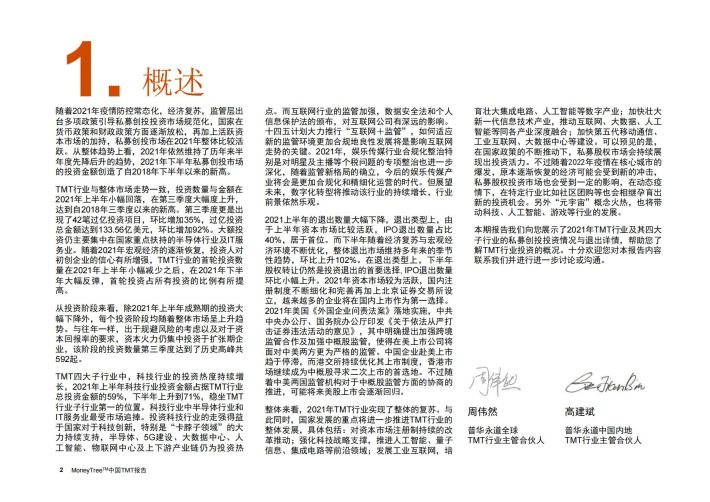 1. 概述
随着2021年疫情防控常态化，经济复苏，监管层出
台多项政策引导私募创投投资市场规范化，国家在
货币政策和财政政策方面逐渐放松，再加上活跃资
本市场的加持，私募创投市场在2021年整体比较活
跃。从整体趋势上看，2021年依然维持了历年来半
年度先降后升的趋势，2021年下半年私募创投市场
的投资金额创造了自2018年下半年以来的新高。
TMT行业与整体市场走势一致，投资数量与金额在
2021年上半年小幅回落，在第三季度大幅度上升，
达到自2018年三季度以来的新高。第三季度更是出
现了42笔过亿投资项目，环比增加35%，过亿投资
总金额达到133.56亿美元，环比增加92%。大额投
资仍主要集中在国家重点扶持的半导体行业及IT服
务业。随着2021年宏观经济的逐渐恢复，投资人对
初创企业的信心有所增强，TMT行业的首轮投资数
量在2021年上半年小幅减少之后，在2021年下半
年大幅反弹，首轮投资占所有投资的比例有所提
高。
从投资阶段来看，除2021年上半年成熟期的投资大
幅下降外，每个投资阶段均随着整体市场呈上升趋
势。与往年一样，出于规避风险的考虑以及对于资
本回报率的要求，资本火力仍集中投资于扩张期企
业，该阶段的投资数量第三季度达到了历史高峰共
592起。
TMT四大子行业中，科技行业的投资热度持续增
长，2021年上半年科技行业投资金额占据TMT行业
总投资金额的59%，下半年上升到71%，稳坐TMT
行业子行业第一的位置。科技行业中半导体行业和
IT服务业最受市场追捧。投资科技行业的走强得益
于国家对于科技创新，特别是“卡脖子领域”的大
力持续支持，半导体、5G建设、大数据中心、人
工智能、物联网中心及上下游产业链仍为投资热
点。而互联网行业的监管加强，数据安全法和个人
信息保护法的颁布，对互联网公司有深远的影响。
十四五计划大力推行“互联网＋监管”，如何适应
新的监管环境更加合规地良性发展将是影响互联网
走势的关键。2021年，娱乐传媒行业合规化整治特
别是对明星及主播等个税问题的专项整治也进一步
深化，随着监管新格局的确立，今后的娱乐传媒产
业将会是更加合规化和精细化运营的时代。但展望
未来，数字化转型将推动该行业的持续增长，行业
前景依然乐观。
2021上半年的退出数量大幅下降，退出类型上，由
于上半年资本市场比较活跃，IPO退出数量占比
40%，居于首位。而下半年随着经济复苏与宏观经
济环境不断优化，整体退出市场维持多年来的季节
性趋势，环比上升102%。在退出类型上，下半年
股权转让仍然是投资退出的首要选择. IPO退出数量
环比小幅上升。2021年资本市场较为活跃，国内注
册制度不断细化和完善再加上北京证券交易所设
立，越来越多的企业将在国内上市作为第一选择。
2021年美国《外国企业问责法案》落地实施，中共
中央办公厅、国务院办公厅印发《关于依法从严打
击证券违法活动的意见》，其中明确提出加强跨境
监管合作及加强中概股监管，使得在美上市公司将
面对中美两方更为严格的监管。中国企业赴美上市
趋于停滞，而港交所持续优化其上市制度，香港市
场继续成为中概股寻求二次上市的首选地。不过随
着中美两国监管机构对于中概股监管方面的协商的
推进，可能将来美股上市会逐渐回归。
整体来看，2021年TMT行业实现了整体的复苏。与
此同时，国家发展的重点将进一步推进TMT行业的
整体发展，具体包括：对资本市场注册制持续的改
革推动；强化科技战略支撑，推进人工智能、量子
信息、集成电路等前沿领域；发展工业互联网，培
育壮大集成电路、人工智能等数字产业；加快壮大
新一代信息技术产业，推动互联网、大数据、人工
智能等同各产业深度融合；加快第五代移动通信、
工业互联网、大数据中心等建设。可以预见的是，
在国家政策的不断推动下，私募股权市场会持续展
现出投资活力。不过随着2022年疫情在核心城市的
爆发，原本逐渐恢复的经济可能会受到新的冲击，
私募股权投资市场也会受到一定的影响，在动态疫
情下，在特定行业比如社区团购等也会相继孕育出
新的投资机会。另外“元宇宙”概念火热，也将带
动科技、人工智能、游戏等行业的发展。
本期报告我们向您展示了2021年TMT行业及其四大
子行业的私募创投投资情况与退出详情，帮助您了
解TMT行业投资的概况。十分欢迎您对本报告内容
联系我们并进行进一步讨论或沟通。
周伟然
普华永道全球
TMT行业主管合伙人
高建斌
普华永道中国内地
TMT行业主管合伙人
2 MoneyTree™中国TMT报告